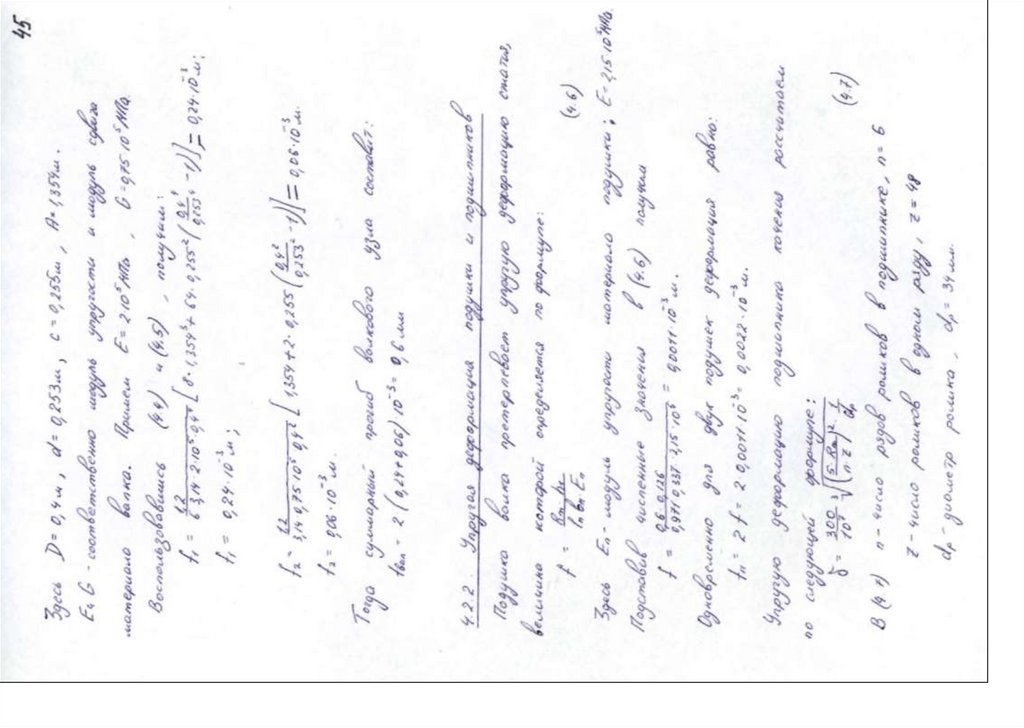 45
Здесь D = 0,4 м, d = 0,253 м, c = 0,255 м, A = 1,354 м.
E и G - соответственно модуль упругости и модуль сдвига
материала валка. Примем E = 2·10⁵ МПа, G = 0,75·10⁵ МПа.
Воспользовавшись (4.4) и (4.5), получим:
f₁ = 0,24·10⁻³ м;
f₂ = 0,06·10⁻³ м.
Тогда суммарный прогиб валкового узла составит:
fвал = 2 (0,24 + 0,06) 10⁻³ = 0,6 мм
4.2.2. Упругая деформация подушки и подшипников
Подушка валка претерпевает упругую деформацию сжатия,
величина которой определяется по формуле:
(4.6)
Здесь Eп - модуль упругости материала подушки; E = 2,15·10⁵ МПа.
Подставив численные значения в (4.6) получим
= 0,0011·10⁻³ м.
Одновременно для двух подушек деформация равна:
fп = 2 f = 2·0,0011·10⁻³ = 0,0022·10⁻³ м.
Упругую деформацию подшипника качения рассчитаем
по следующей формуле:
(4.7)
В (4.7) n - число рядов роликов в подшипнике, n = 6
z - число роликов в одном ряду, z = 48
dр - диаметр ролика, dр = 34 мм.